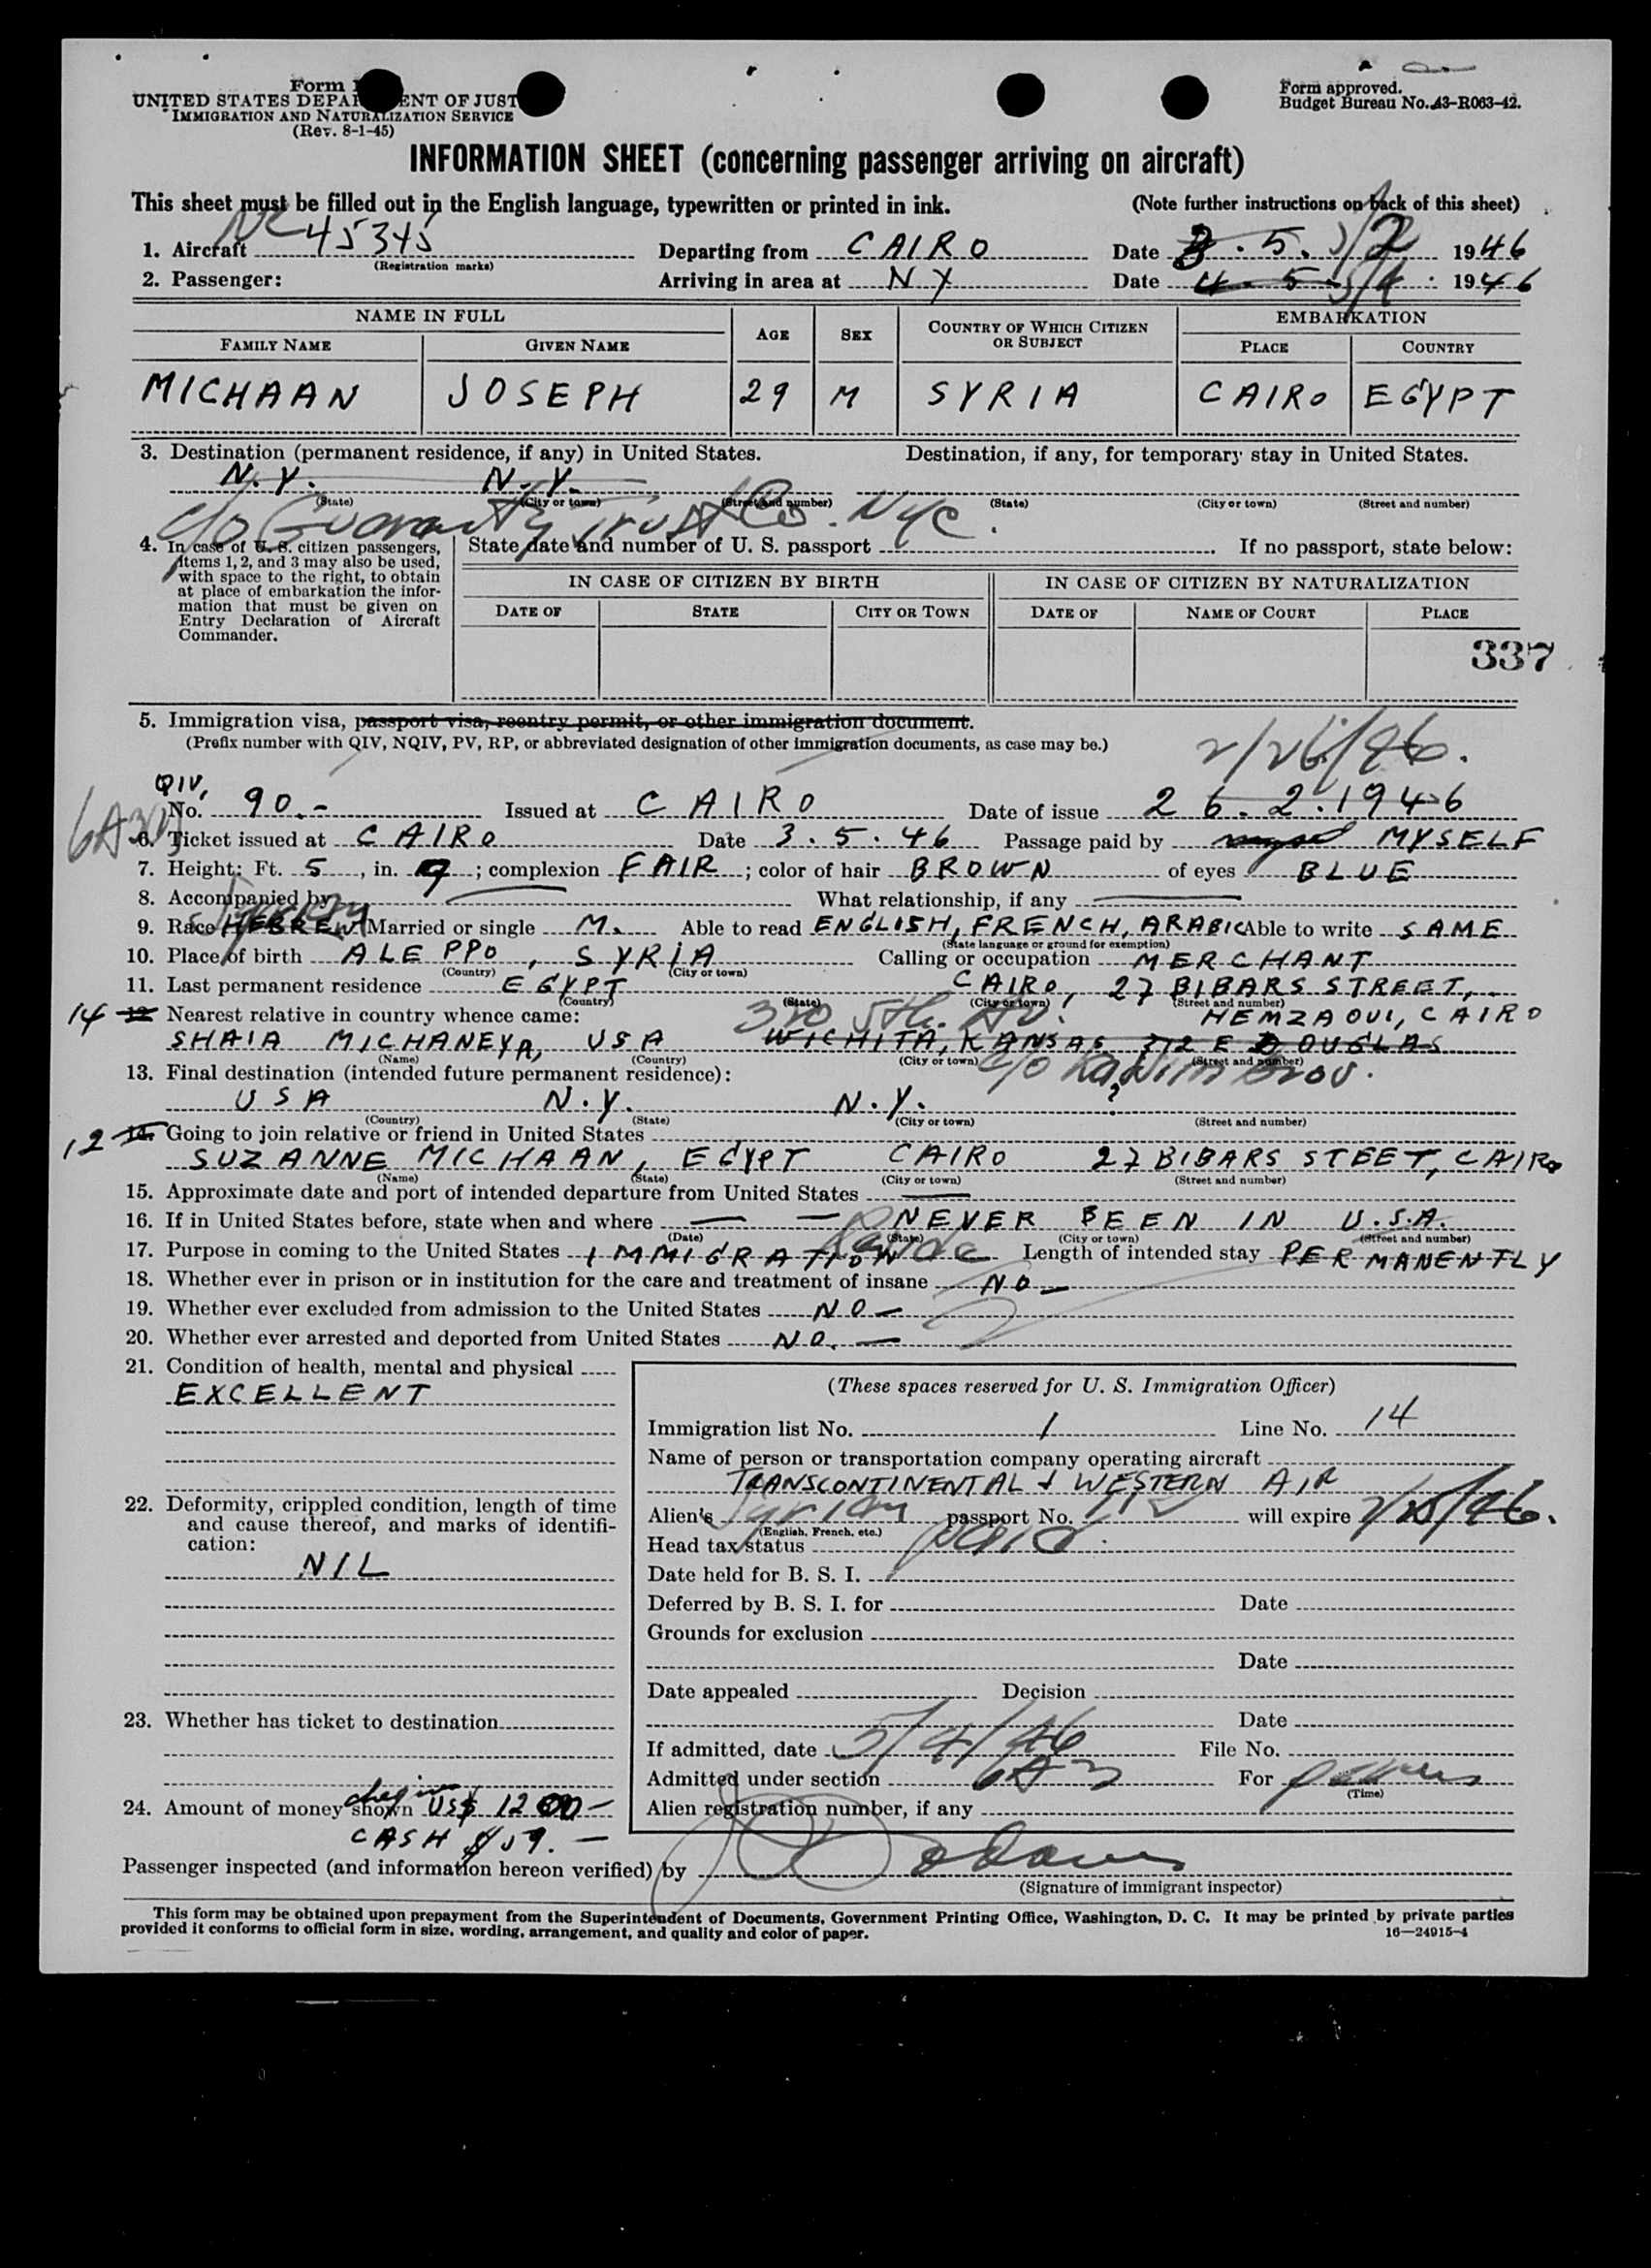 Form
UNITED STATES DEPARTMENT OF JUST
IMMIGRATION AND NATURALIZATION SERVICE
(Rev. 8-1-45)
Form approved.
Budget Bureau No. 43-R063-42.
INFORMATION SHEET (concerning passenger arriving on aircraft)
This sheet must be filled out in the English language, typewritten or printed in ink. (Note further instructions on back of this sheet)
1. Aircraft NC 45345 Departing from CAIRO Date 3.5. 5/2 1946
(Registration marks)
2. Passenger: Arriving in area at NY Date 4.5 5/4 1946
NAME IN FULL AGE SEX COUNTRY OF WHICH CITIZEN OR SUBJECT EMBARKATION
FAMILY NAME GIVEN NAME PLACE COUNTRY
MICHAAN JOSEPH 29 M SYRIA CAIRO EGYPT
3. Destination (permanent residence, if any) in United States. Destination, if any, for temporary stay in United States.
N.Y. N.Y.
(State) (City or town) (Street and number) (State) (City or town) (Street and number)
c/o Guaranty Trust Co. NYC.
4. In case of U. S. citizen passengers, items 1, 2, and 3 may also be used, with space to the right, to obtain at place of embarkation the information that must be given on Entry Declaration of Aircraft Commander.
State date and number of U. S. passport If no passport, state below:
IN CASE OF CITIZEN BY BIRTH IN CASE OF CITIZEN BY NATURALIZATION
DATE OF STATE CITY OR TOWN DATE OF NAME OF COURT PLACE
337
5. Immigration visa, passport visa, reentry permit, or other immigration document.
(Prefix number with QIV, NQIV, PV, RP, or abbreviated designation of other immigration documents, as case may be.)
2/26/46.
QIV,
No. 90.- Issued at CAIRO Date of issue 26.2.1946
6A3
6. Ticket issued at CAIRO Date 3.5.46 Passage paid by MYSELF
7. Height: Ft. 5, in. 9; complexion FAIR; color of hair BROWN of eyes BLUE
8. Accompanied by What relationship, if any
Syrian
9. Race HEBREW Married or single M. Able to read ENGLISH, FRENCH, ARABIC Able to write SAME
(State language or ground for exemption)
10. Place of birth ALEPPO, SYRIA Calling or occupation MERCHANT
(Country) (City or town)
11. Last permanent residence EGYPT CAIRO, 27 BIBARS STREET,
(Country) (State) (City or town) (Street and number)
14 12 Nearest relative in country whence came: 320 5th Av. HEMZAOUI, CAIRO
SHAIA MICHANEYA, USA WICHITA, KANSAS 312 E DOUGLAS
(Name) (Country) (City or town) (Street and number)
13. Final destination (intended future permanent residence):
USA N.Y. N.Y. ?
(Country) (State) (City or town) (Street and number)
12 14. Going to join relative or friend in United States
SUZANNE MICHAAN, EGYPT CAIRO 27 BIBARS STEET, CAIRO
(Name) (State) (City or town) (Street and number)
15. Approximate date and port of intended departure from United States
16. If in United States before, state when and where NEVER BEEN IN U.S.A.
(Date) (State) (City or town) (Street and number)
17. Purpose in coming to the United States IMMIGRATION Length of intended stay PERMANENTLY
18. Whether ever in prison or in institution for the care and treatment of insane NO
19. Whether ever excluded from admission to the United States NO
20. Whether ever arrested and deported from United States NO.
21. Condition of health, mental and physical
EXCELLENT
22. Deformity, crippled condition, length of time and cause thereof, and marks of identification:
NIL
23. Whether has ticket to destination
24. Amount of money shown US$ 1200
CASH $ 59.
(These spaces reserved for U. S. Immigration Officer)
Immigration list No. 1 Line No. 14
Name of person or transportation company operating aircraft
TRANSCONTINENTAL & WESTERN AIR
Alien's Syrian passport No. will expire
(English, French, etc.)
Head tax status paid
Date held for B. S. I.
Deferred by B. S. I. for Date
Grounds for exclusion
Date
Date appealed Decision
Date
If admitted, date 5/4/46 File No.
Admitted under section 6A3 For
(Time)
Alien registration number, if any
Passenger inspected (and information hereon verified) by
(Signature of immigrant inspector)
This form may be obtained upon prepayment from the Superintendent of Documents, Government Printing Office, Washington, D. C. It may be printed by private parties
provided it conforms to official form in size, wording, arrangement, and quality and color of paper.
16—24915-4